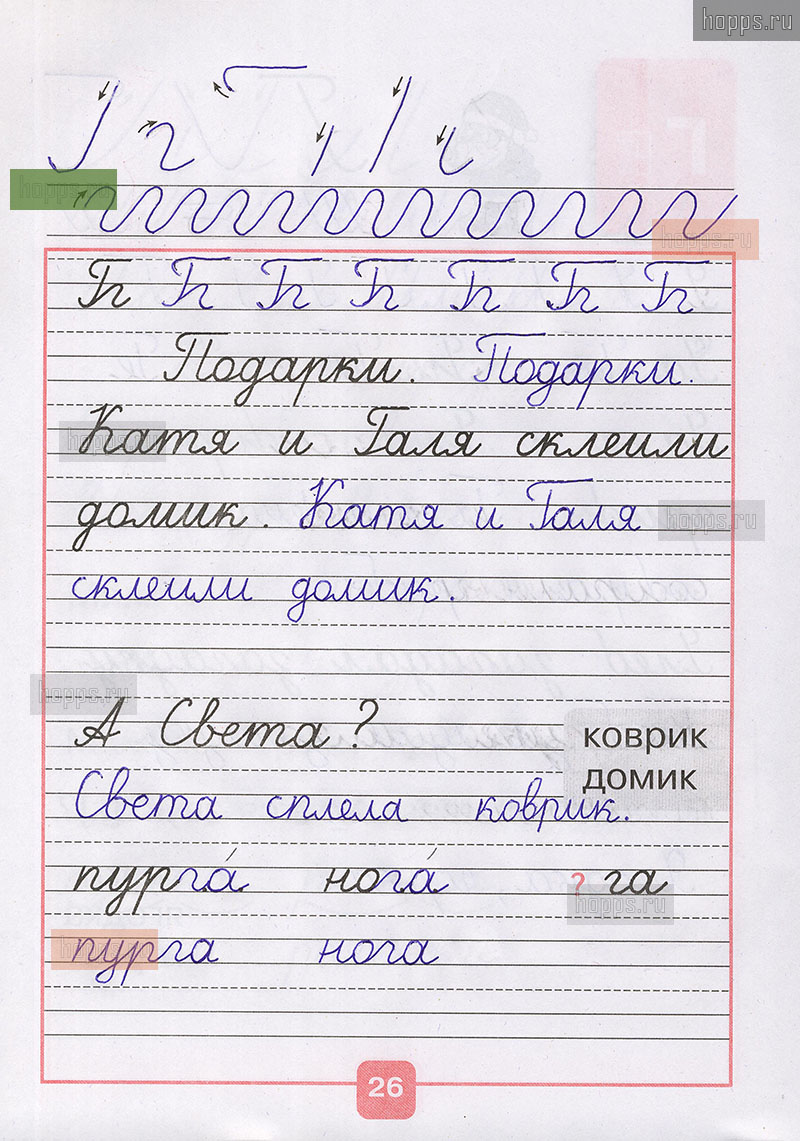 hopps.ru
hopps.ru
hopps.ru
Гг Гг Гг Гг Гг Гг Гг
Подарки. Подарки.
hopps.ru
Катя и Галя склеили
домик. Катя и Галя
hopps.ru
склеили домик.
hopps.ru
А Света?
коврик
домик
Света сплела коврик.
пурга́ нога́ ? га
hopps.ru
пурга нога
26